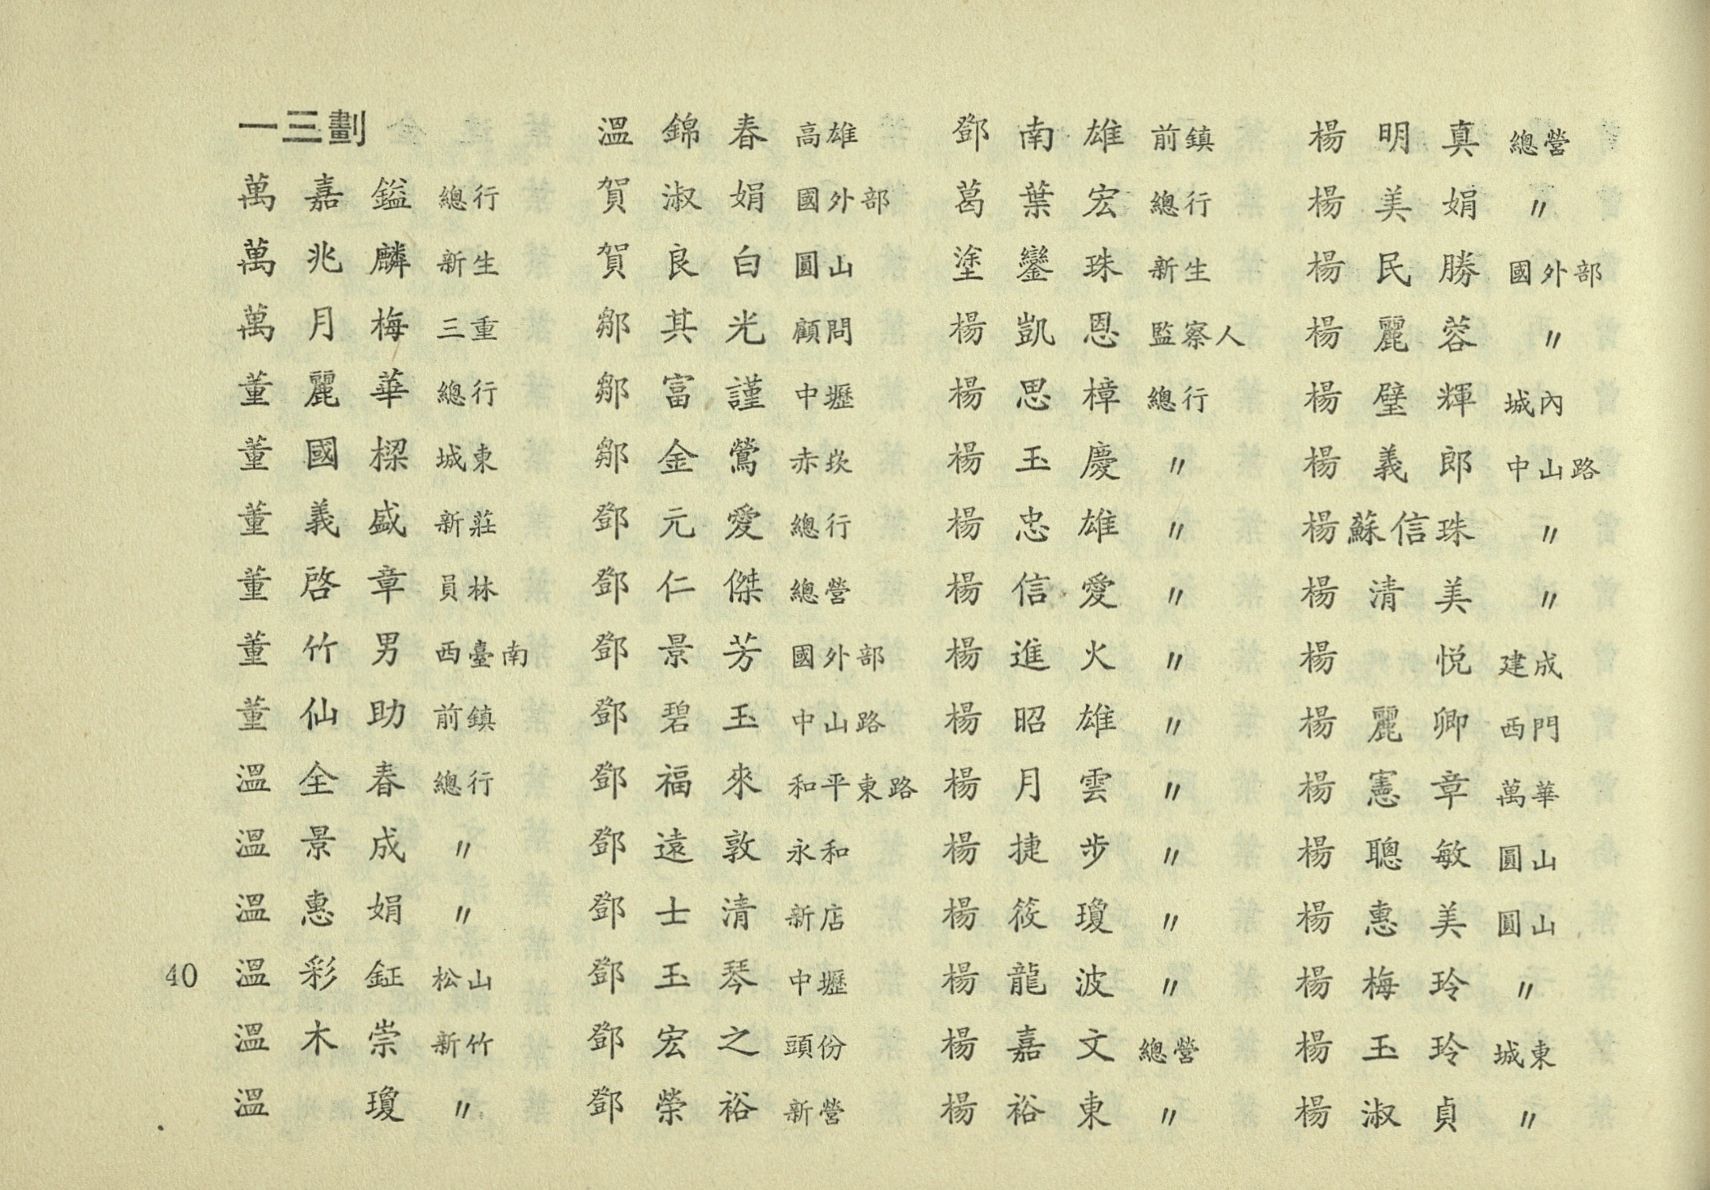 一三劃
萬嘉鎰 總行
萬兆麟 新生
萬月梅 三重
董麗華 總行
董國樑 城東
董義盛 新莊
董啓章 員林
董竹男 西臺南
董仙助 前鎮
溫全春 總行
溫景成 〃
溫惠娟 〃
溫彩鉦 松山
溫木崇 新竹
溫瓊 〃
溫錦春 高雄
賀淑娟 國外部
賀良白 圓山
鄒其光 顧問
鄒富謹 中壢
鄒金鶯 赤崁
鄧元愛 總行
鄧仁傑 總營
鄧景芳 國外部
鄧碧玉 中山路
鄧福來 和平東路
鄧遠敦 永和
鄧士清 新店
鄧玉琴 中壢
鄧宏之 頭份
鄧榮裕 新營
鄧南雄 前鎮
葛葉宏 總行
塗鑾珠 新生
楊凱恩 監察人
楊思樟 總行
楊玉慶 〃
楊忠雄 〃
楊信愛 〃
楊進火 〃
楊昭雄 〃
楊月雲 〃
楊捷步 〃
楊筱瓊 〃
楊龍波 〃
楊嘉文 總營
楊裕東 〃
楊明真 總營
楊美娟 〃
楊民勝 國外部
楊麗蓉 〃
楊璧輝 城內
楊義郎 中山路
楊蘇信珠 〃
楊清美 〃
楊悅 建成
楊麗卿 西門
楊憲章 萬華
楊聰敏 圓山
楊惠美 圓山
楊梅玲 〃
楊玉玲 城東
楊淑貞 〃
40